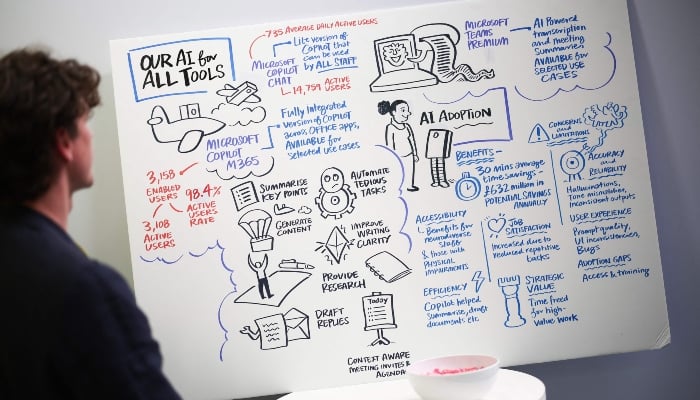 OUR AI for
ALL TOOLS
735 AVERAGE DAILY ACTIVE USERS
MICROSOFT
COPILOT
CHAT
Lite version of
Copilot that
can be used
by ALL STAFF
14,759 ACTIVE
USERS
MICROSOFT
TEAMS
PREMIUM
AI Powered
transcription
and meeting
Summaries
AVAILABLE for
SELECTED USE
CASES
MICROSOFT
COPILOT
M365
Fully Integrated
version of Copilot
across OFFICE apps,
AVAILABLE for
selected use cases
3,158
ENABLED
USERS
98.4%
ACTIVE
USERS
RATE
3,108
ACTIVE
USERS
SUMMARISE
KEY POINTS
AUTOMATE
TEDIOUS
TASKS
GENERATE
CONTENT
IMPROVE
WRITING
CLARITY
PROVIDE
RESEARCH
DRAFT
REPLIES
Today
CONTEXT AWARE
MEETING INVITES &
AGENDA
AI ADOPTION
BENEFITS
30 mins average
time savings
£632 million in
POTENTIAL SAVINGS
ANNUALLY
ACCESSIBILITY
Benefits for
neurodiverse
staff
& those with
PHYSICAL
IMPAIRMENTS
EFFICIENCY
Copilot helped
Summarise, draft
documents etc
JOB
SATISFACTION
Increased due to
reduced repetitive
tasks
STRATEGIC
VALUE
Time freed
for high-
value work
CONCERNS
and
LIMITATIONS
ACCURACY
and
RELIABILITY
Hallucinations,
Tone mismatches,
inconsistent outputs
USER EXPERIENCE
Prompt quality,
UI inconsistencies,
Bugs
ADOPTION GAPS
Access & training